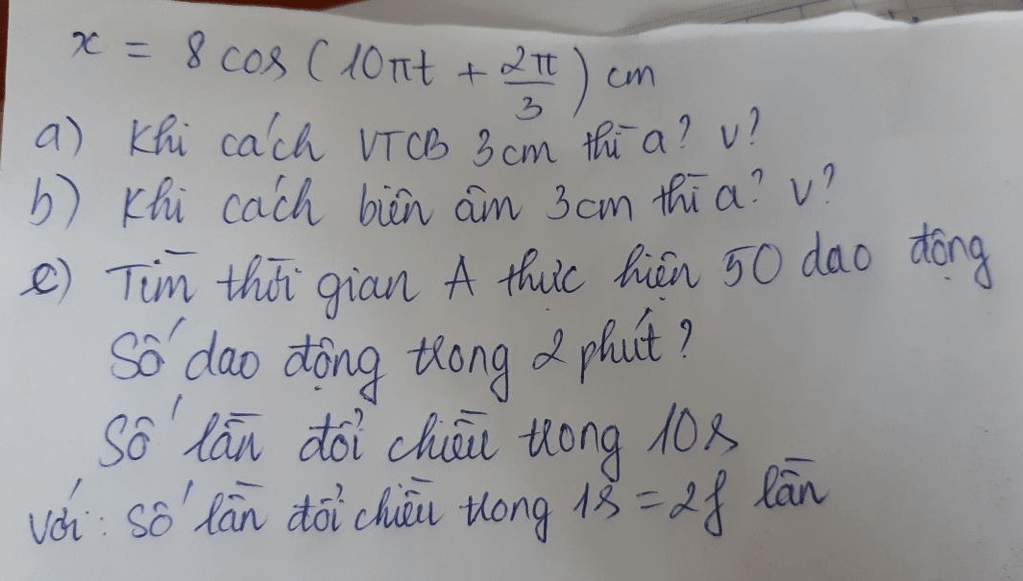 x = 8 cos (10πt + 2π/3) cm
a) Khi cách VTCB 3cm thì a? v?
b) Khi cách biên âm 3cm thì a? v?
c) Tìm thời gian A thực hiện 50 dao động
Số dao động trong 2 phút?
Số lần đổi chiều trong 10s
Với: Số lần đổi chiều trong 1s = 2f lần